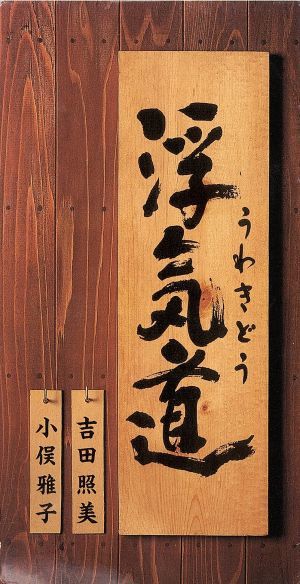 浮気道
うわきどう
吉田照美
小俣雅子